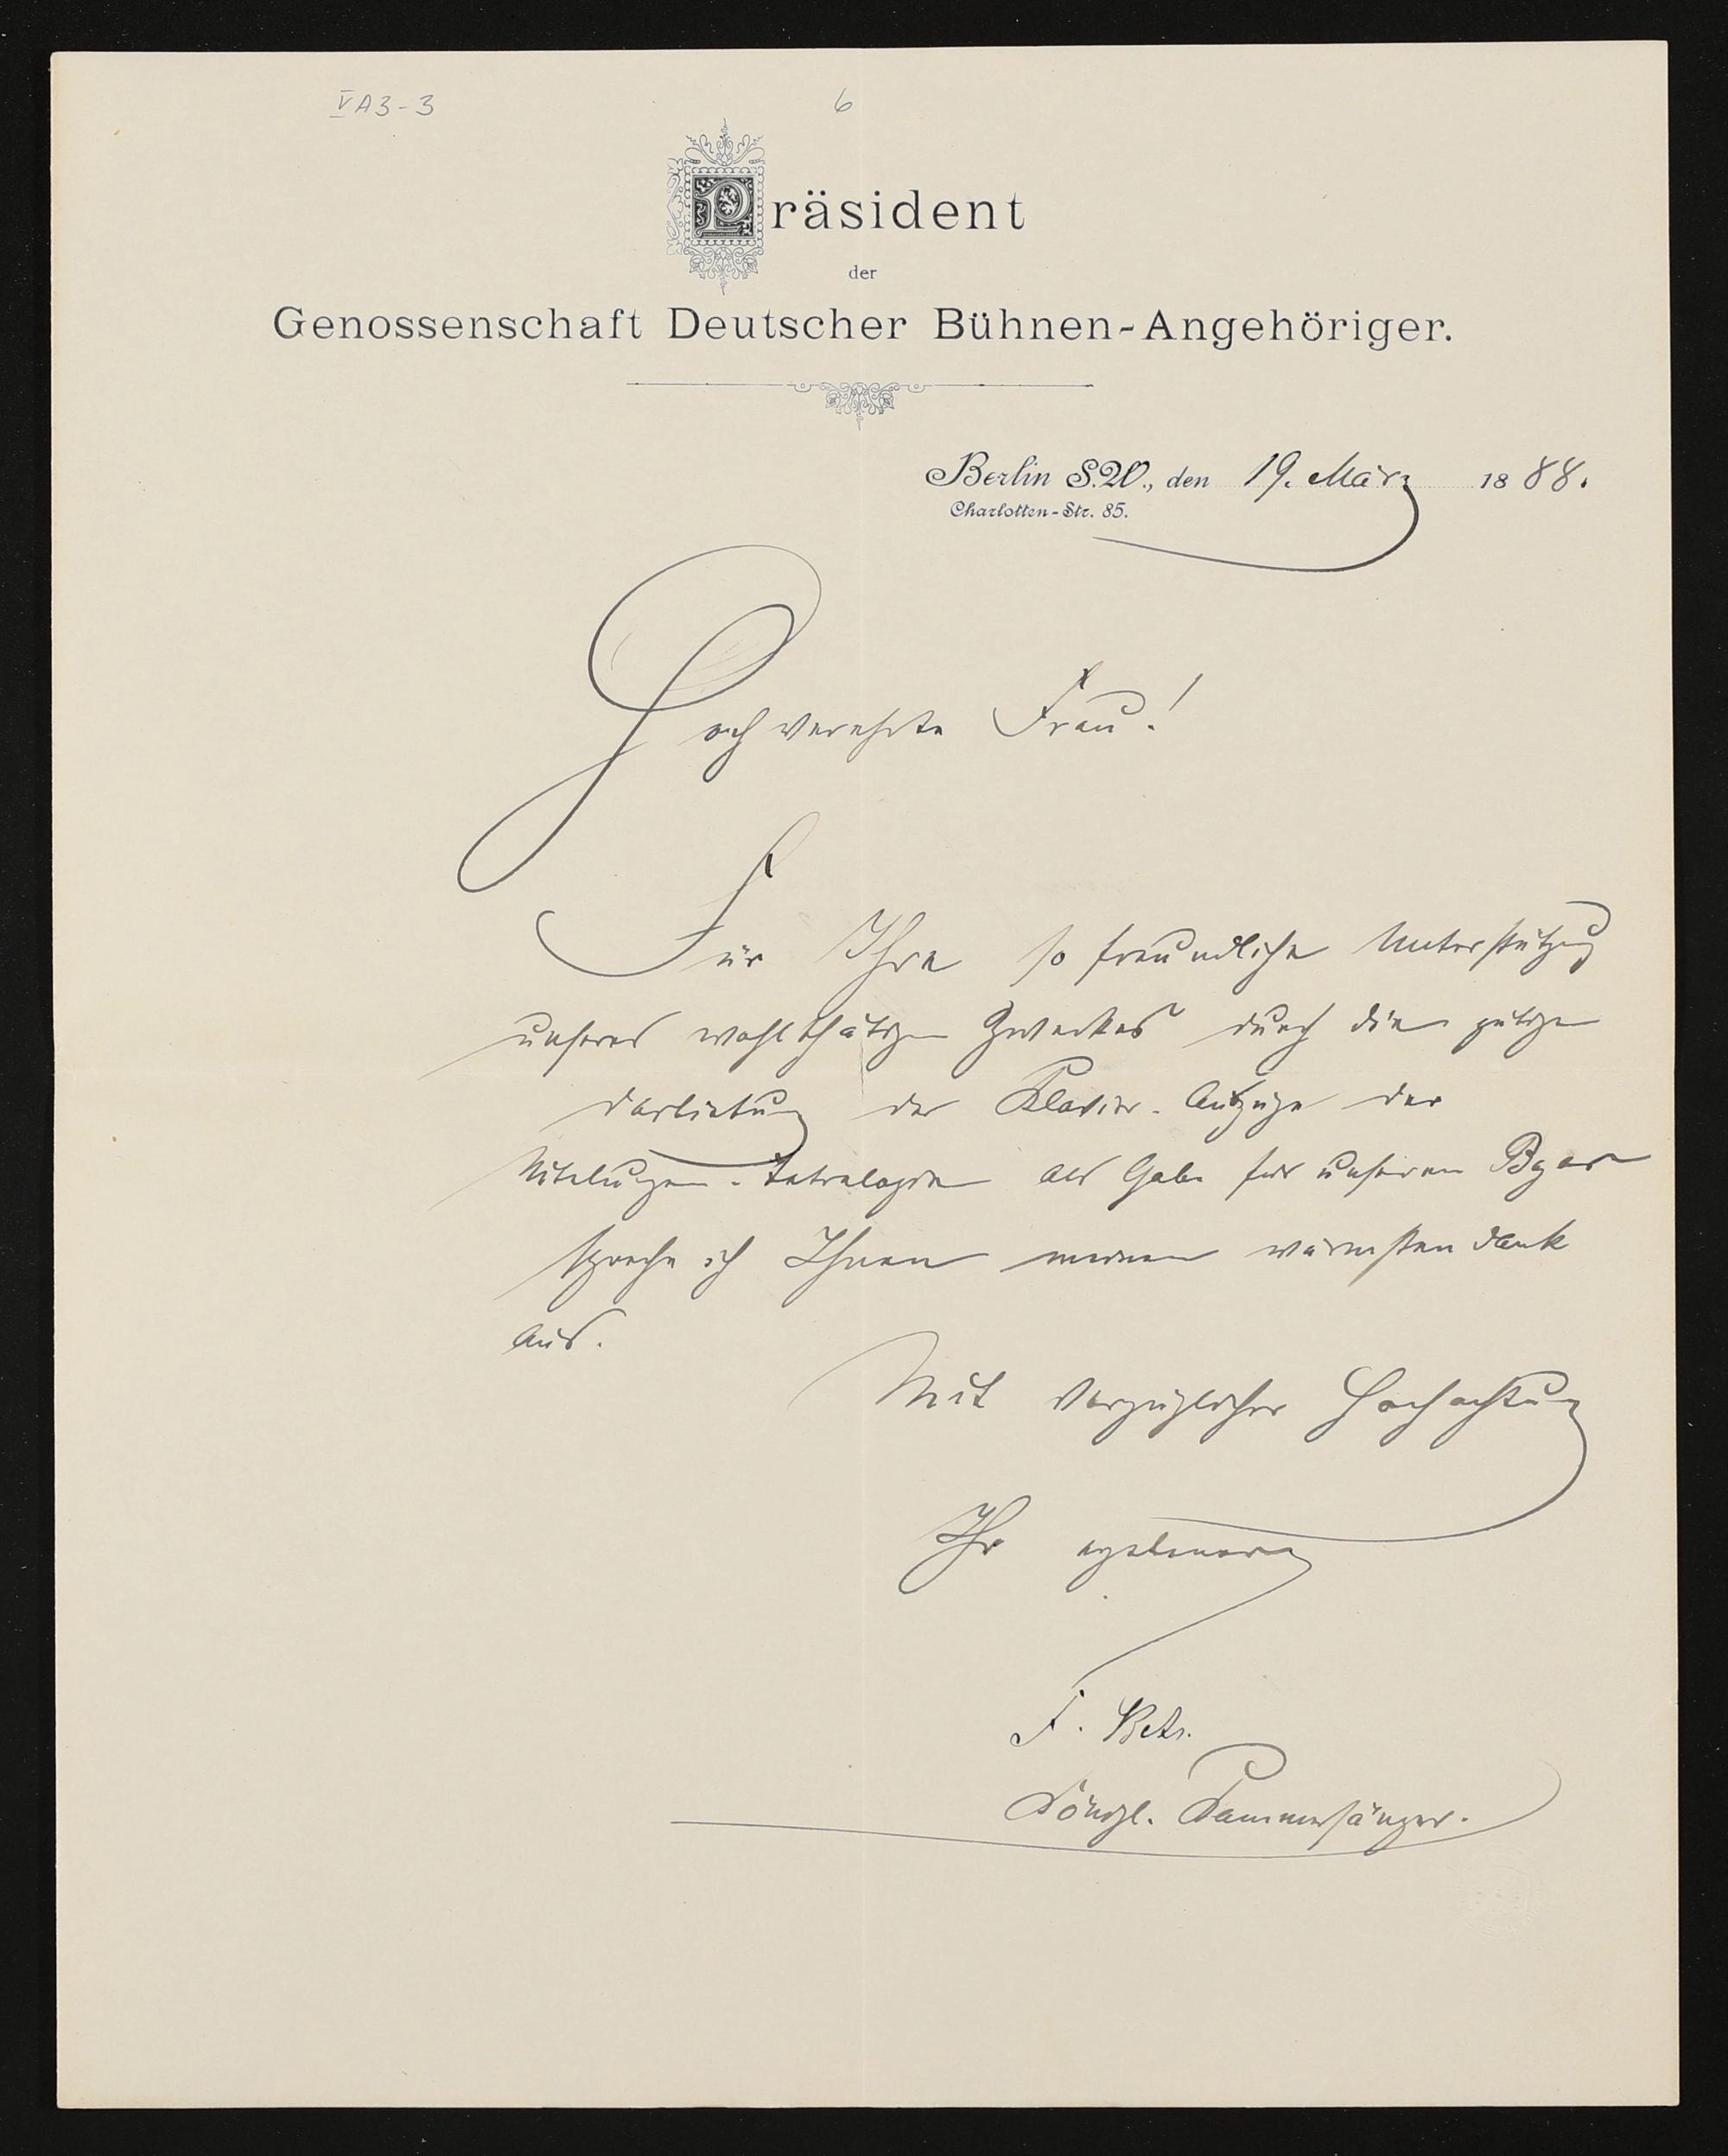 VA3-3 6
Präsident
der
Genossenschaft Deutscher Bühnen-Angehöriger.
Berlin S.W., den 19. März 1888.
Charlotten-Str. 85.
Hochverehrte Frau!
Für Ihre so freundliche Unterstützung
unseres wohlthätigen Zweckes durch die gütige
Darbietung der Klavier-Auszüge der
Nibelungen-Tetralogie als Gabe für unseren
spreche ich Ihnen meinen wärmsten Dank
aus.
Mit vorzüglicher Hochachtung
Ihr ergebener
F. Betz.
Königl. Kammersänger.